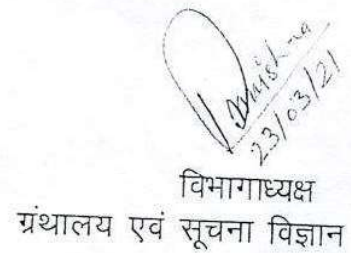 23/03/21
विभागाध्यक्ष
ग्रंथालय एवं सूचना विज्ञान